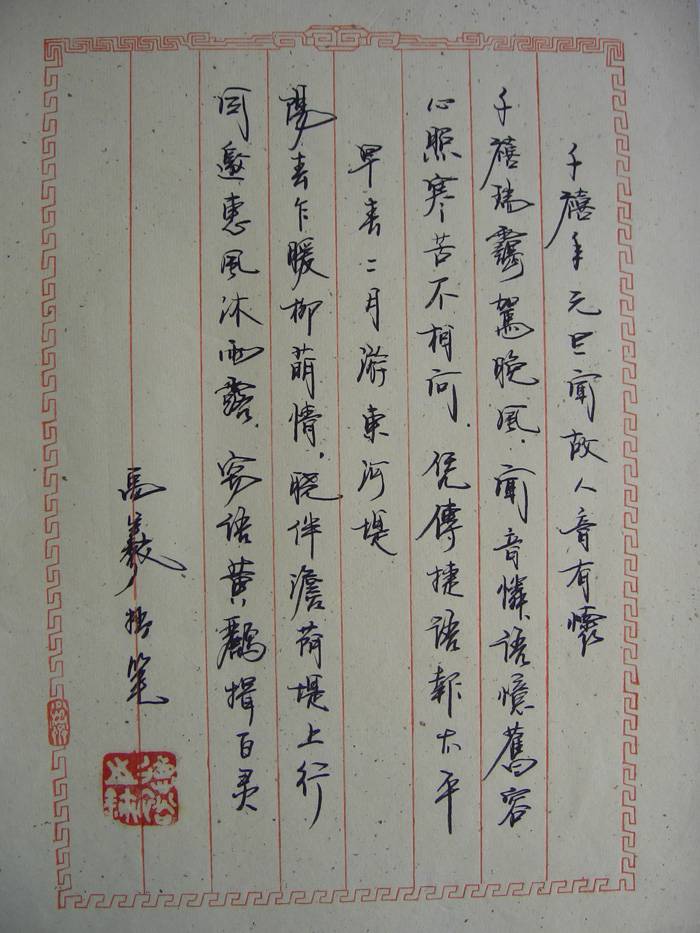 千禧年元旦聞故人音有懷
千禧瑞靄駕晚风.聞音憐語憶舊容
心照寒苦不相问.凭傳捷語報太平
早春二月游東河堤
陽春乍暖柳萌情.晓伴澹荷堤上行
同邀惠風沐雨露.寄语黄鸝揖百灵
馬義拙笔